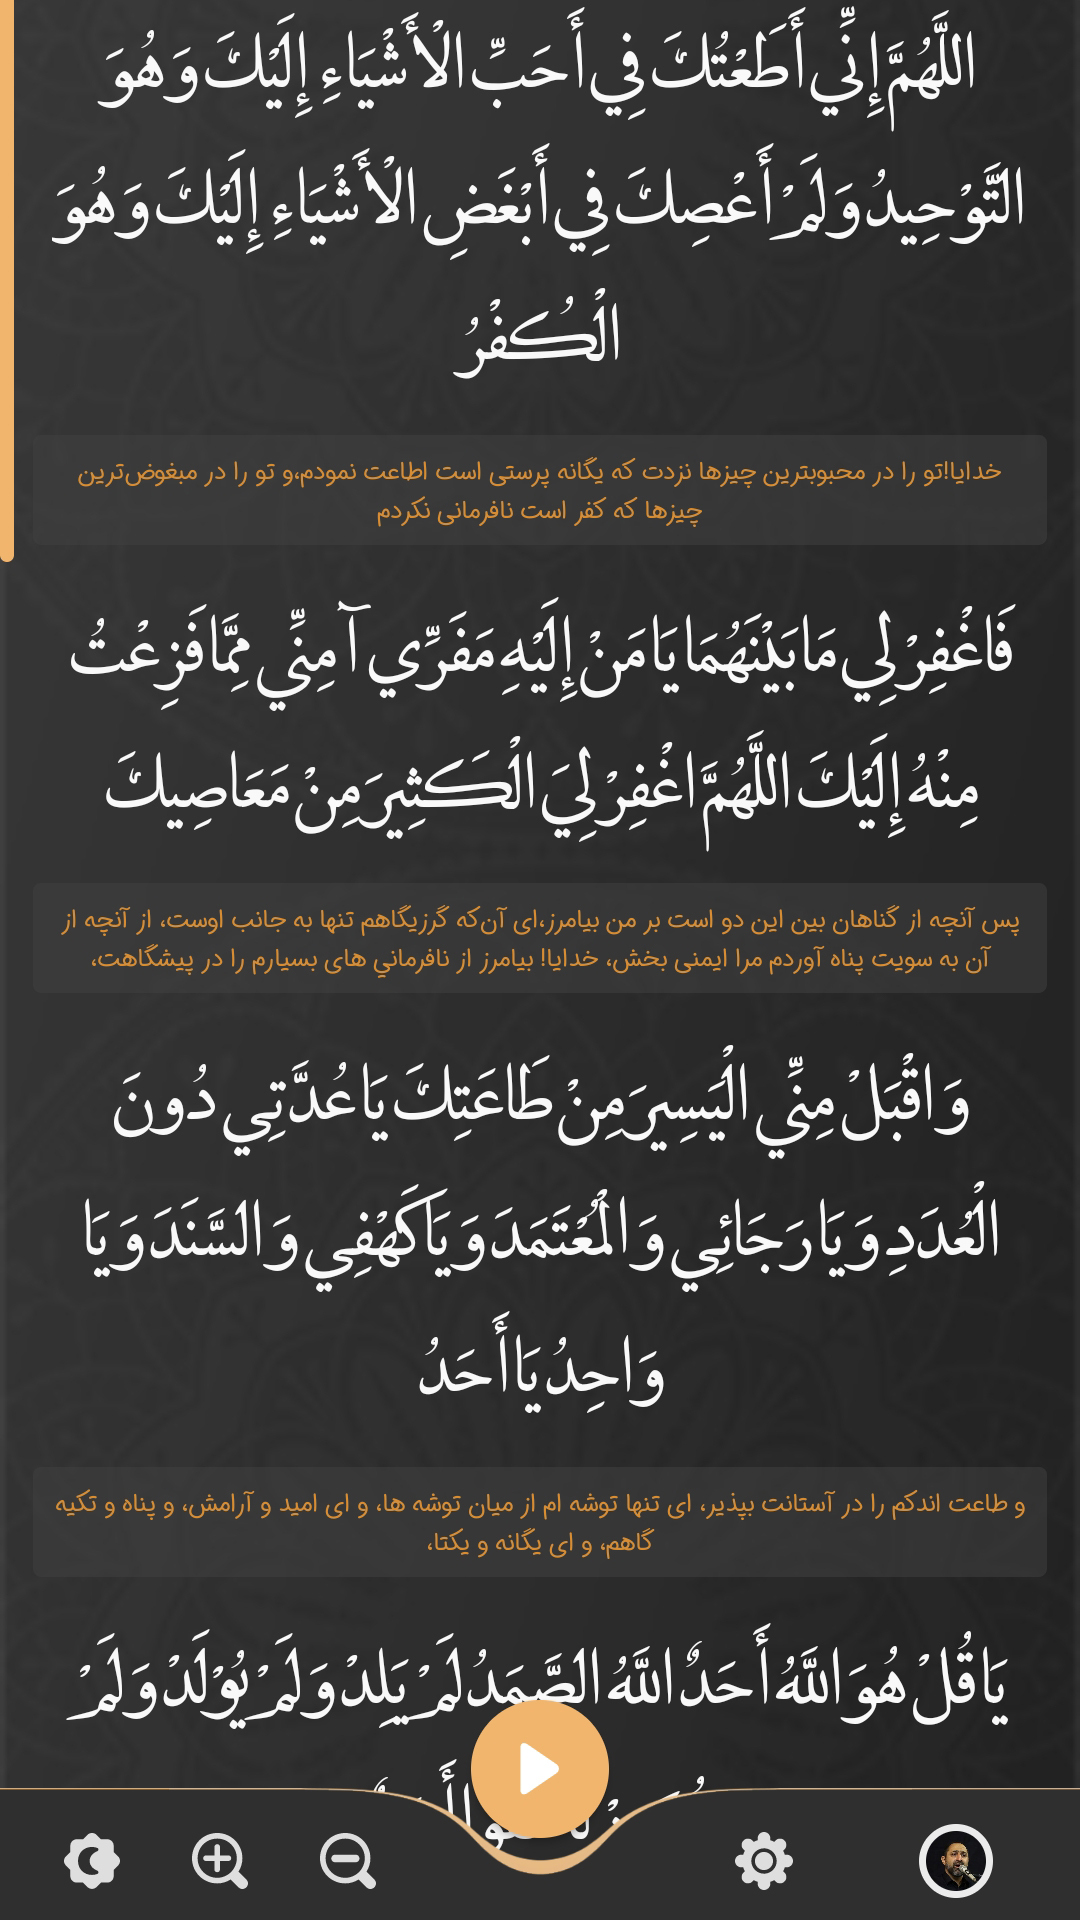 اللَّهُمَّ إِنِّي أَطَعْتُكَ فِي أَحَبِّ الْأَشْيَاءِ إِلَيْكَ وَهُوَ
التَّوْحِيدُ وَلَمْ أَعْصِكَ فِي أَبْغَضِ الْأَشْيَاءِ إِلَيْكَ وَهُوَ
الْكُفْرُ
خدایا!تو را در محبوبترین چیزها نزدت که یگانه پرستی است اطاعت نمودم،و تو را در مبغوض‌ترین
چیزها که کفر است نافرمانی نکردم
فَاغْفِرْ لِي مَا بَيْنَهُمَا يَا مَنْ إِلَيْهِ مَفَرِّي آمِنِّي مِمَّا فَزِعْتُ
مِنْهُ إِلَيْكَ اللَّهُمَّ اغْفِرْ لِيَ الْكَثِيرَ مِنْ مَعَاصِيكَ
پس آنچه از گناهان بین این دو است بر من بیامرز،ای آن‌که گرزیگاهم تنها به جانب اوست، از آنچه از
آن به سویت پناه آوردم مرا ایمنی بخش، خدایا! بیامرز از نافرماني های بسیارم را در پیشگاهت،
وَ اقْبَلْ مِنِّي الْيَسِيرَ مِنْ طَاعَتِكَ يَا عُدَّتِي دُونَ
الْعُدَدِ وَ يَا رَجَائِي وَ الْمُعْتَمَدَ وَ يَا كَهْفِي وَ السَّنَدَ وَ يَا
وَاحِدُ يَا أَحَدُ
و طاعت اندکم را در آستانت بپذیر، ای تنها توشه ام از میان توشه ها، و ای امید و آرامش، و پناه و تکیه
گاهم، و ای یگانه و یکتا،
يَا قُلْ هُوَ اللَّهُ أَحَدٌ اللَّهُ الصَّمَدُ لَمْ يَلِدْ وَ لَمْ يُولَدْ وَ لَمْ